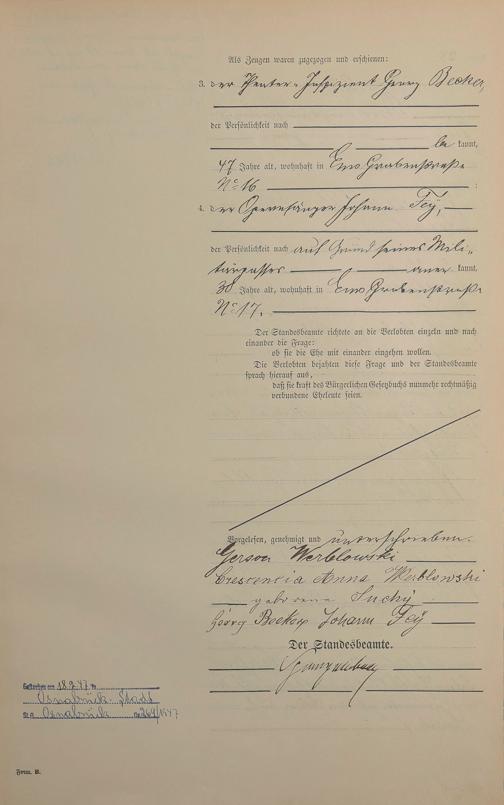 Als Zeugen waren zugezogen und erschienen:
3. der Theater-Inspizient Georg Becker,
der Persönlichkeit nach
be kannt,
47 Jahre alt, wohnhaft in Ems Grabenstraße
No 16 ;
4. der Opernsänger Johann Feÿ,
der Persönlichkeit nach auf Grund seines Mili„
tärpasses aner kannt,
38 Jahre alt, wohnhaft in Ems Grabenstraße
No 17.
Der Standesbeamte richtete an die Verlobten einzeln und nach
einander die Frage:
ob sie die Ehe mit einander eingehen wollen.
Die Verlobten bejahten diese Frage und der Standesbeamte
sprach hierauf aus,
daß sie kraft des Bürgerlichen Gesetzbuchs nunmehr rechtmäßig
verbundene Eheleute seien.
Vorgelesen, genehmigt und unterschrieben.
Gerson Werblowski
Crescencia Anna Werblowski
geborene Suchÿ
Georg Becker Johann Feÿ
Der Standesbeamte.
Gestorben am 18.2.47
Osnabrück-Stadt
Osnabrück 264/1947
Form. B.